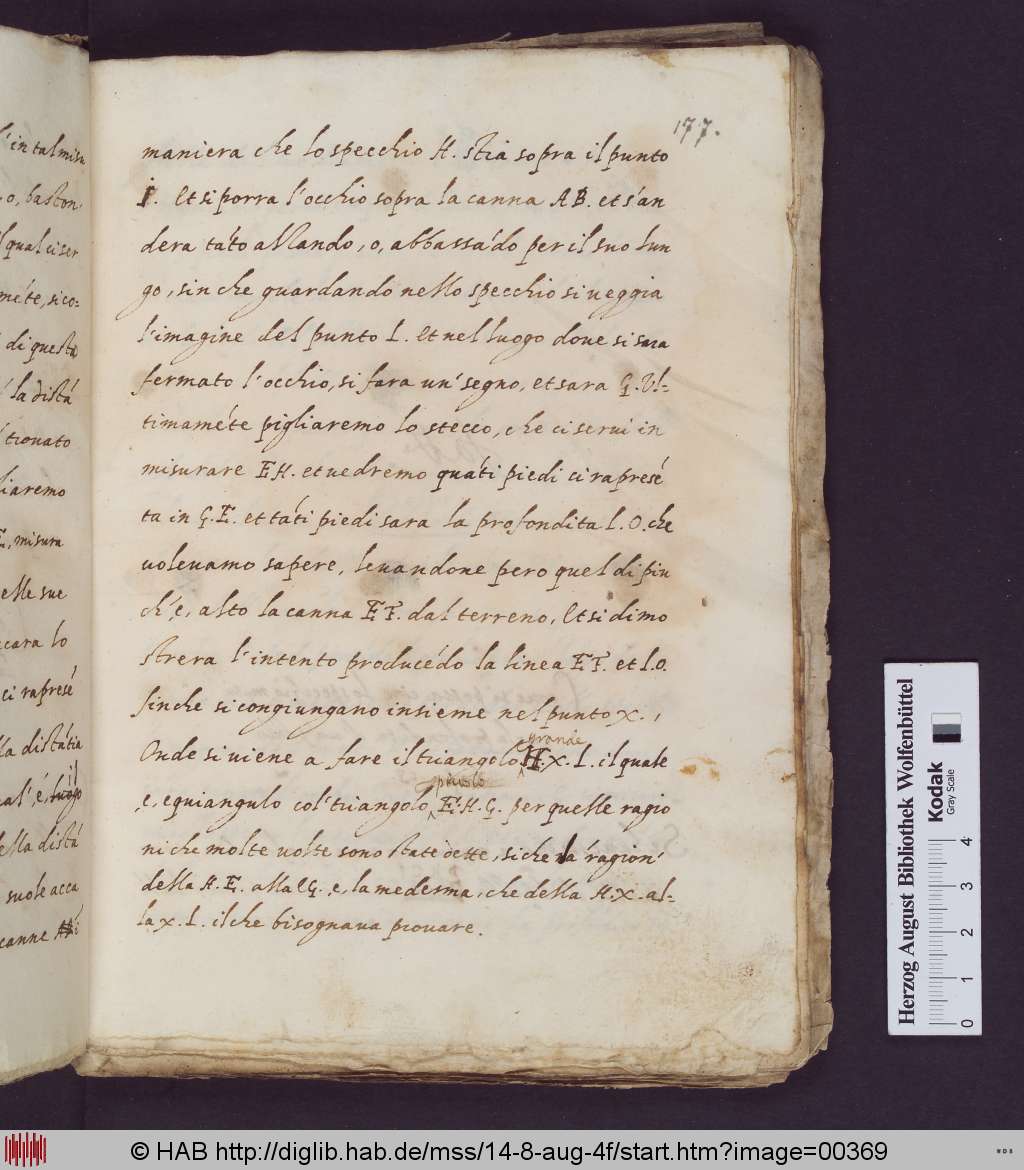 177.
maniera che lo specchio H. stia sopra il punto
I. et si porra l'occhio sopra la canna AB. et s'an
dera tāto alzando, o, abbassādo per il suo lun
go, sin che guardando nello specchio si ueggia
l'imagine del punto L. et nel luogo doue si sara
fermato l'occhio, si fara un' segno, et sara G. Ul-
timamēte pigliaremo lo stecco, che ci serui in
misurare EH. et uedremo quāti piedi ci rapresē
ta in G.E. et tāti piedi sara la profondita L.O. che
uoleuamo sapere, leuandone pero quel di piu
ch'è, alto la canna EF. dal terreno, et si dimo
strera l'intento producēdo la linea EF. et LO.
finche si congiungano insieme nel punto X.,
Onde si uiene a fare il triangolo grande H.X.L. il quale
,e, equiangulo col' triangolo piccolo E.H.G. per quelle ragio
ni che molte uolte sono state dette, si che la ragion'
della H.E. alla EG. e, la medesma, che della H.X. al-
la X.L. il che bisognaua prouare.
l'in tal misu
o, baston
l qual ci ser
mēte, si co-
di questa
la distā
trouato
liaremo
E, misura
elle sue
cara lo
ci rapresē
lla distātia
ual' é, il luogo
ella distā
suole acca
canne
Herzog August Bibliothek Wolfenbüttel
Kodak
Gray Scale
0 1 2 3 4
© HAB http://diglib.hab.de/mss/14-8-aug-4f/start.htm?image=00369